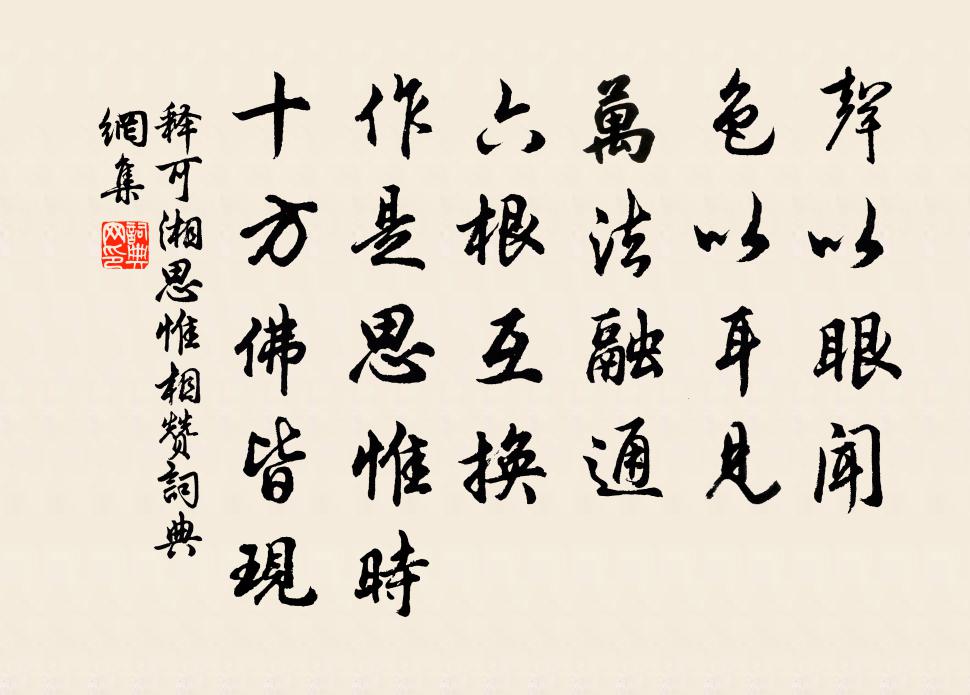 聲以眼聞
色以耳見
萬法融通
六根互換
作是思惟時
十方佛皆現
释可湘思惟相赞詞典
網集
詞典
网印